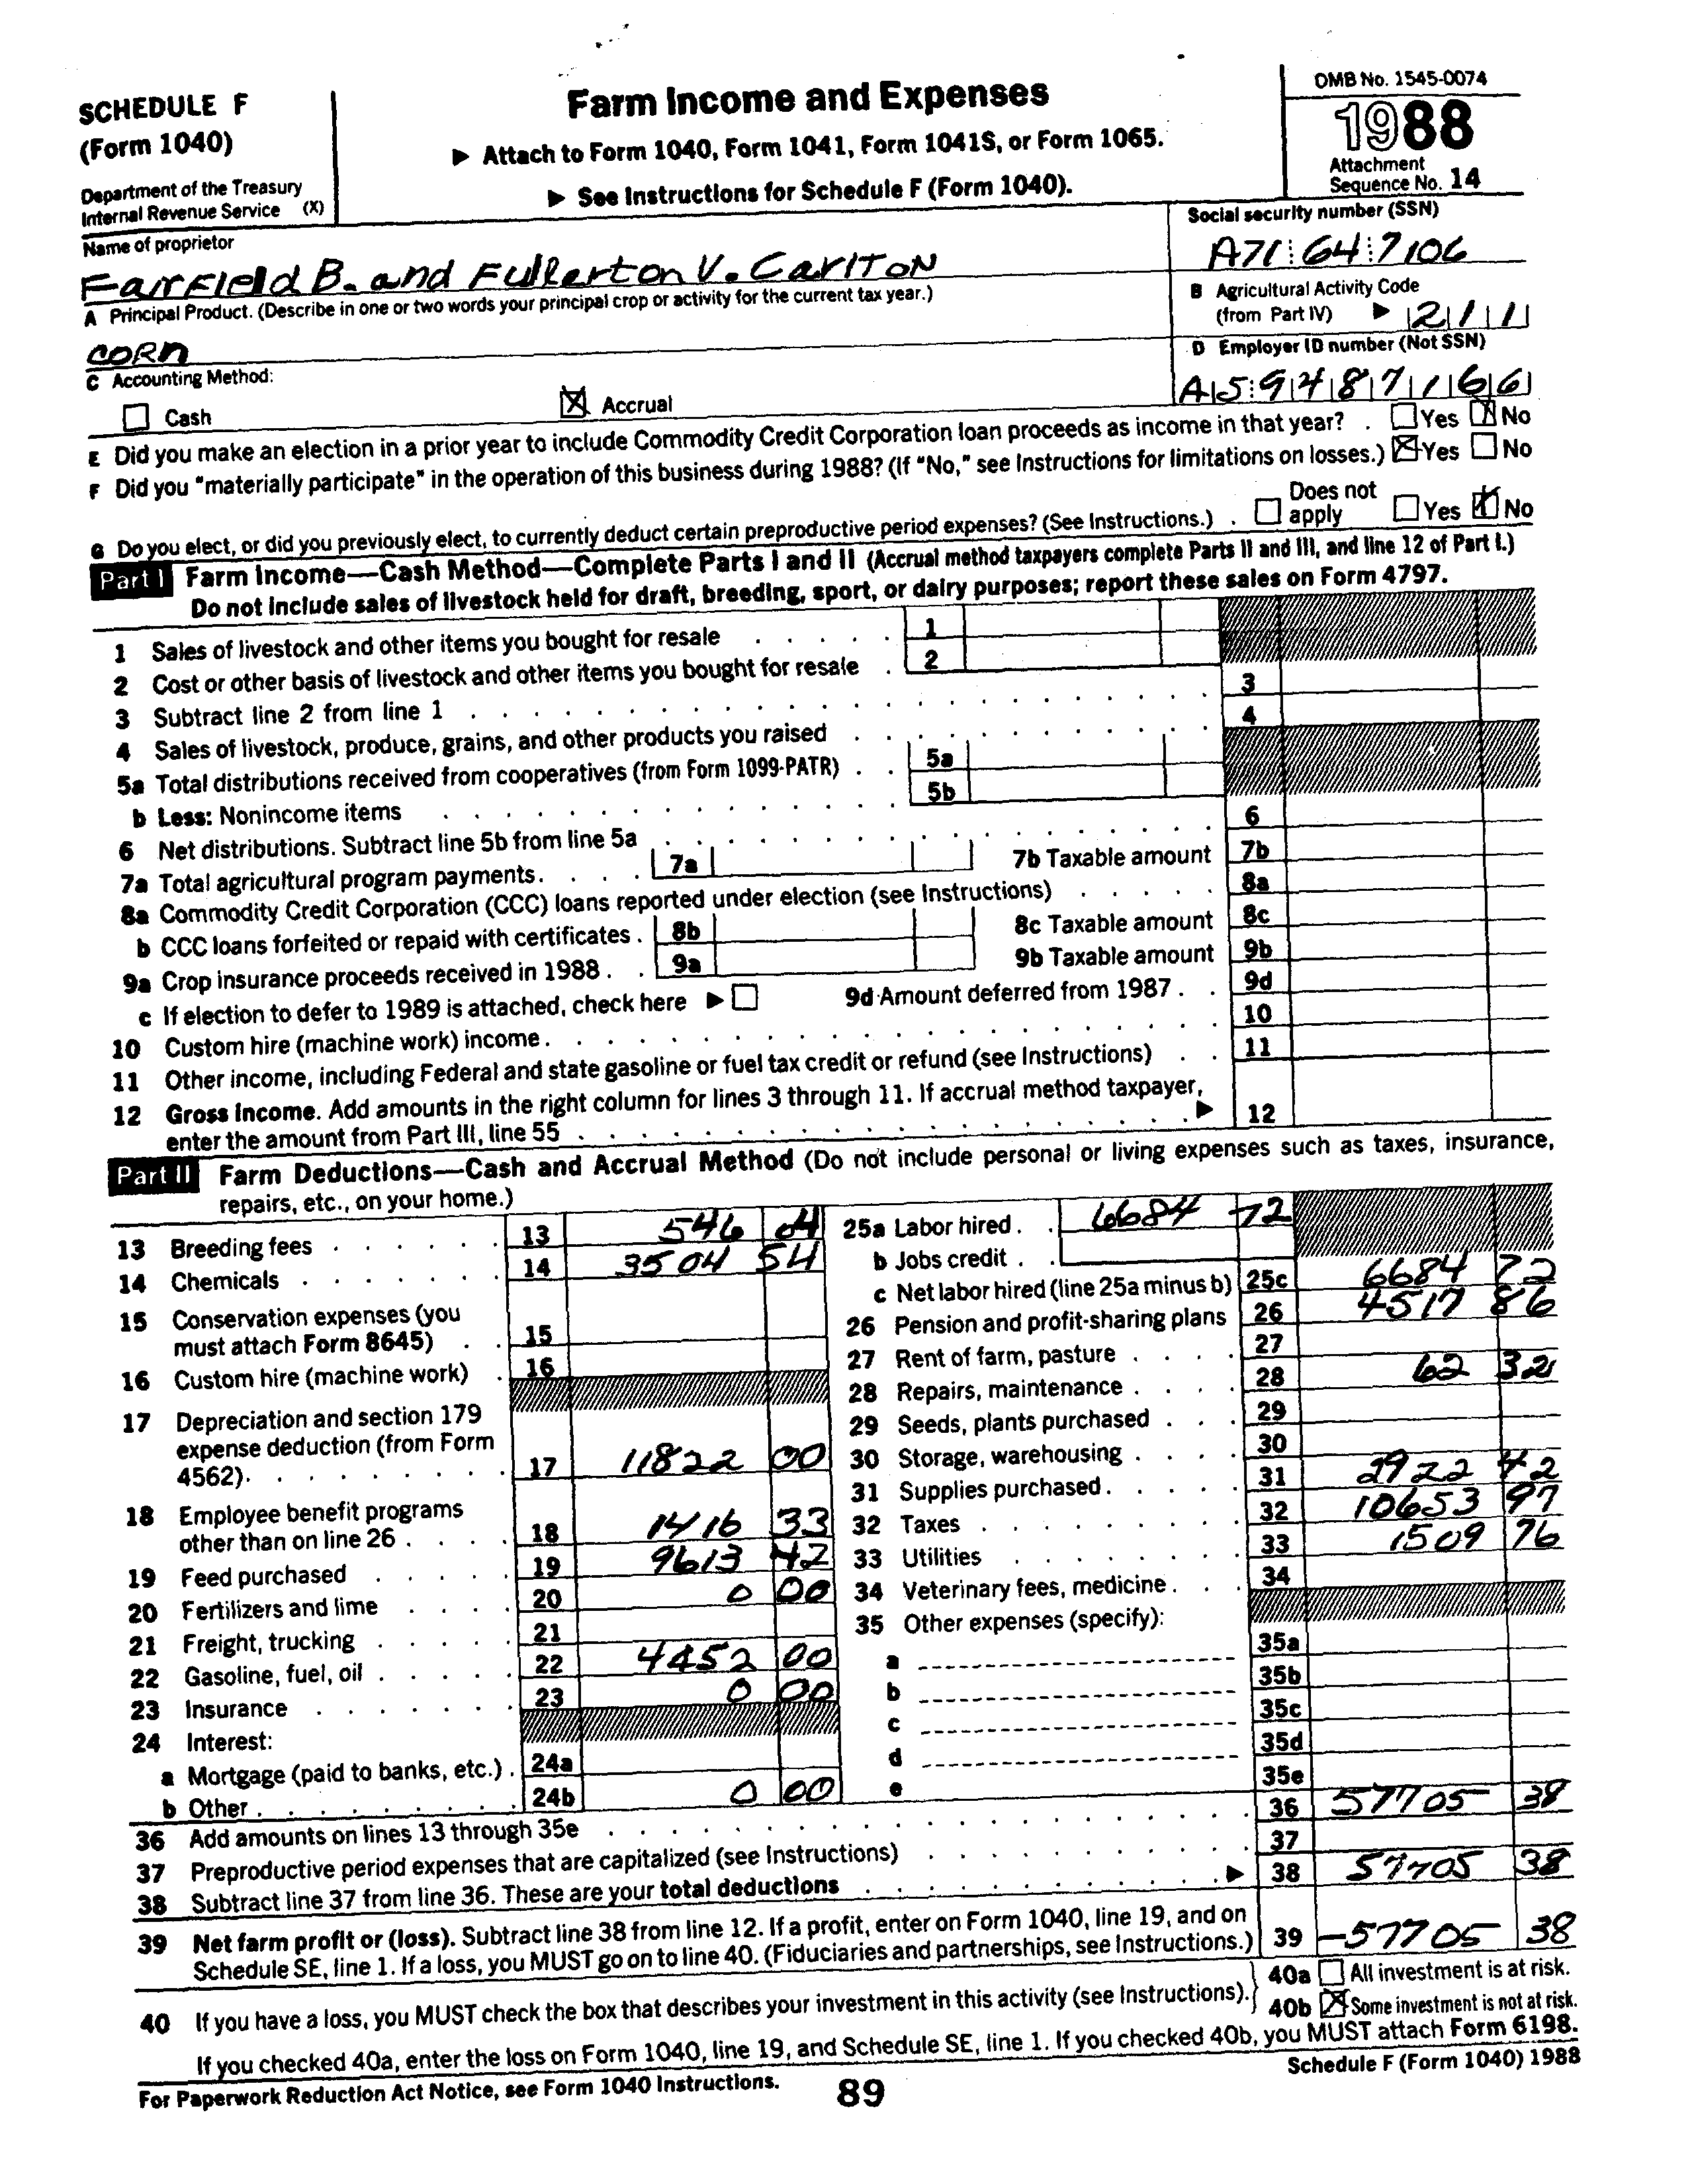 SCHEDULE F
(Form 1040)
Department of the Treasury
Internal Revenue Service (X)
Farm Income and Expenses
▶ Attach to Form 1040, Form 1041, Form 1041S, or Form 1065.
▶ See Instructions for Schedule F (Form 1040).
OMB No. 1545-0074
1988
Attachment
Sequence No. 14
Name of proprietor
Fairfield B. and Fullerton V. Carlton
Social security number (SSN)
A71 64 7106
A Principal Product. (Describe in one or two words your principal crop or activity for the current tax year.)
CORn
B Agricultural Activity Code
(from Part IV) ▶ 211
C Accounting Method:
Cash
Accrual
D Employer ID number (Not SSN)
A59487166
E Did you make an election in a prior year to include Commodity Credit Corporation loan proceeds as income in that year? . Yes No
F Did you "materially participate" in the operation of this business during 1988? (If "No," see Instructions for limitations on losses.) Yes No
G Do you elect, or did you previously elect, to currently deduct certain preproductive period expenses? (See Instructions.) . Does not apply Yes No
Part I Farm Income—Cash Method—Complete Parts I and II (Accrual method taxpayers complete Parts II and III, and line 12 of Part I.)
Do not include sales of livestock held for draft, breeding, sport, or dairy purposes; report these sales on Form 4797.
1 Sales of livestock and other items you bought for resale 1
2 Cost or other basis of livestock and other items you bought for resale 2
3 Subtract line 2 from line 1 3
4 Sales of livestock, produce, grains, and other products you raised 4
5a Total distributions received from cooperatives (from Form 1099-PATR) 5a
b Less: Nonincome items 5b
6 Net distributions. Subtract line 5b from line 5a 6
7a Total agricultural program payments. 7a 7b Taxable amount 7b
8a Commodity Credit Corporation (CCC) loans reported under election (see Instructions) 8a
b CCC loans forfeited or repaid with certificates 8b 8c Taxable amount 8c
9a Crop insurance proceeds received in 1988 9a 9b Taxable amount 9b
c If election to defer to 1989 is attached, check here ▶ 9d Amount deferred from 1987 9d
10 Custom hire (machine work) income 10
11 Other income, including Federal and state gasoline or fuel tax credit or refund (see Instructions) 11
12 Gross Income. Add amounts in the right column for lines 3 through 11. If accrual method taxpayer,
enter the amount from Part III, line 55 ▶ 12
Part II Farm Deductions—Cash and Accrual Method (Do not include personal or living expenses such as taxes, insurance,
repairs, etc., on your home.)
13 Breeding fees 13 546 04
14 Chemicals 14 3504 54
15 Conservation expenses (you
must attach Form 8645) 15
16 Custom hire (machine work) 16
17 Depreciation and section 179
expense deduction (from Form
4562) 17 11822 00
18 Employee benefit programs
other than on line 26 18 1416 33
19 Feed purchased 19 9613 42
20 Fertilizers and lime 20 0 00
21 Freight, trucking 21
22 Gasoline, fuel, oil 22 4452 00
23 Insurance 23 0 00
24 Interest:
a Mortgage (paid to banks, etc.) 24a
b Other 24b 0 00
25a Labor hired 6684 72
b Jobs credit
c Net labor hired (line 25a minus b) 25c 6684 72
26 Pension and profit-sharing plans 26 4517 86
27 Rent of farm, pasture 27
28 Repairs, maintenance 28 62 32
29 Seeds, plants purchased 29
30 Storage, warehousing 30
31 Supplies purchased 31 2922 42
32 Taxes 32 10653 97
33 Utilities 33 1509 76
34 Veterinary fees, medicine 34
35 Other expenses (specify):
a 35a
b 35b
c 35c
d 35d
e 35e
36 Add amounts on lines 13 through 35e 36 57705 38
37 Preproductive period expenses that are capitalized (see Instructions) 37
38 Subtract line 37 from line 36. These are your total deductions ▶ 38 57705 38
39 Net farm profit or (loss). Subtract line 38 from line 12. If a profit, enter on Form 1040, line 19, and on
Schedule SE, line 1. If a loss, you MUST go on to line 40. (Fiduciaries and partnerships, see Instructions.) 39 -57705 38
40 If you have a loss, you MUST check the box that describes your investment in this activity (see Instructions).
40a All investment is at risk.
40b Some investment is not at risk.
If you checked 40a, enter the loss on Form 1040, line 19, and Schedule SE, line 1. If you checked 40b, you MUST attach Form 6198.
For Paperwork Reduction Act Notice, see Form 1040 Instructions.
89
Schedule F (Form 1040) 1988